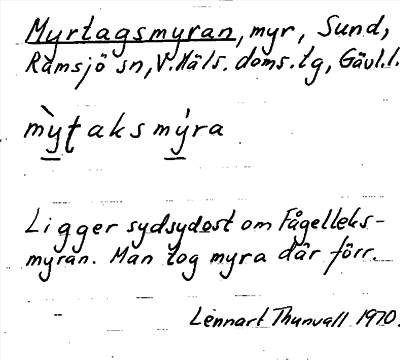 Myrtagsmyran, myr, Sund,
Ramsjö sn, V. Häls. doms. tg, Gävl. l.
mỳtaksmýra
Ligger sydsydost om Fågelleks-
myran. Man tog myra där förr.
Lennart Thunvall 1970.